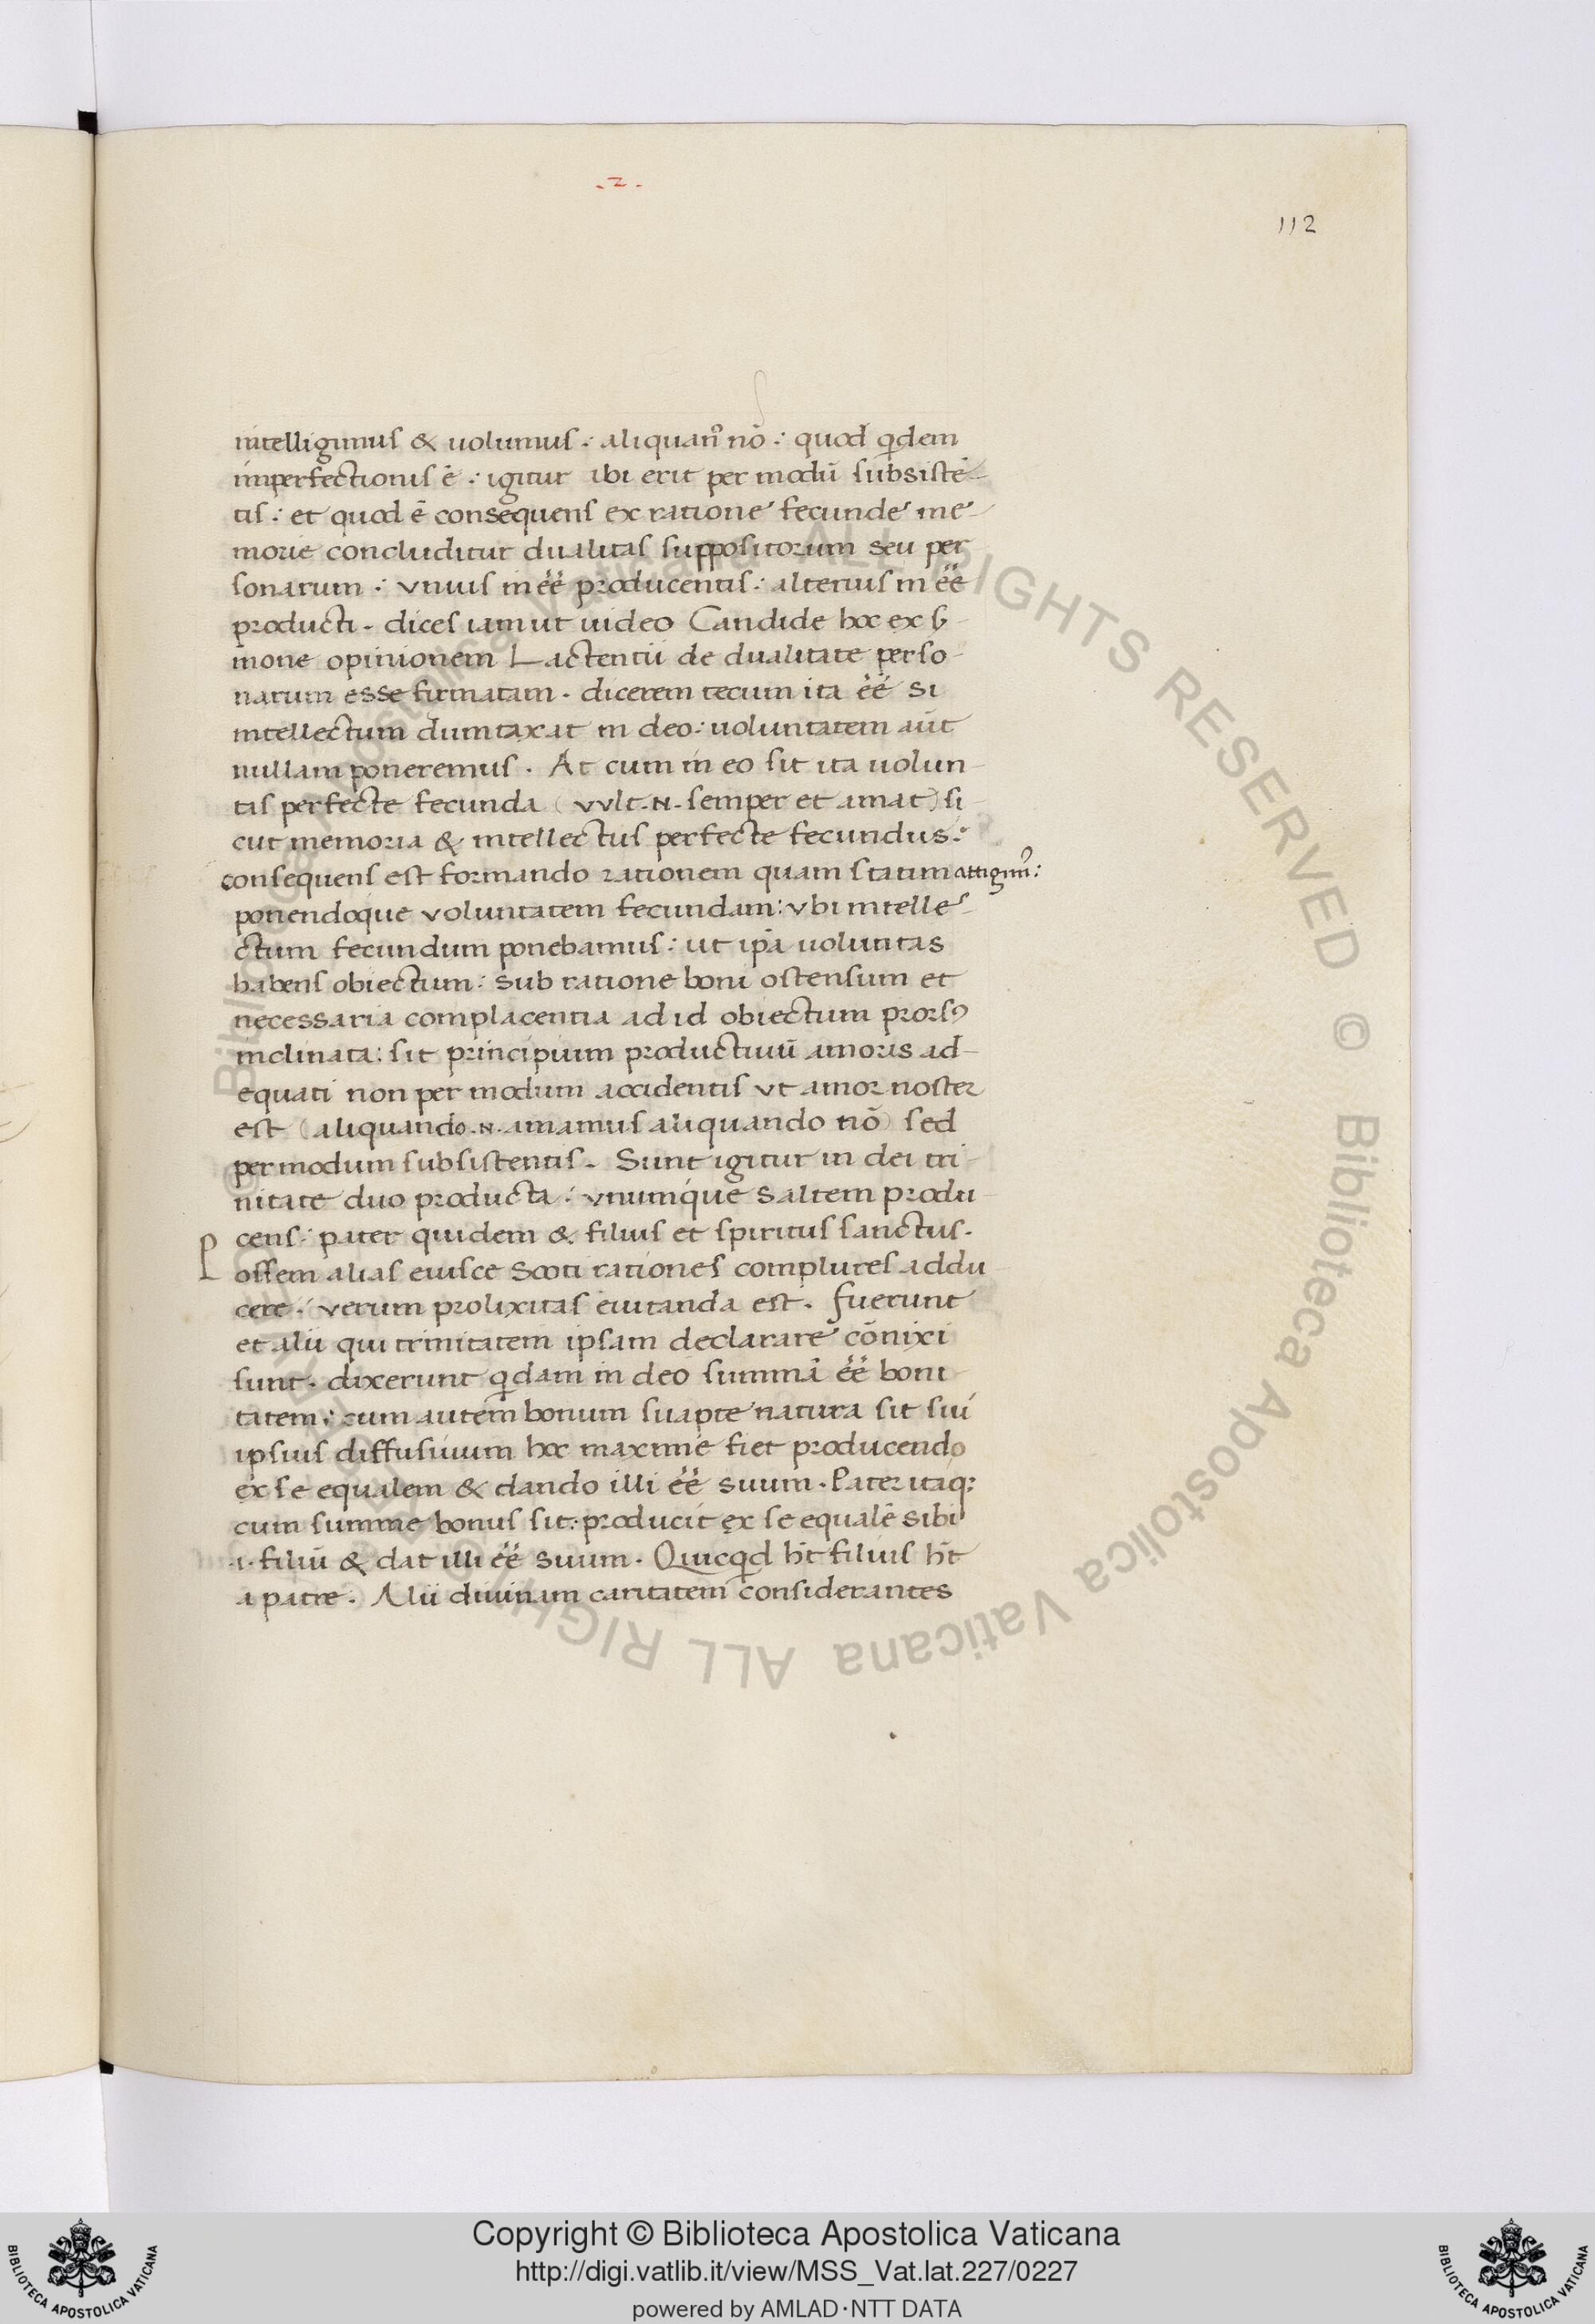 .2.
112
intelligimus & uolumus : aliquan̄ nō : quod qdem
imperfectionis ē : igitur ibi erit per modū subsistē-
tis : et quod ē consequens ex ratione fecunde me-
morie concluditur dualitas suppositorum seu per
sonarum : vnius in eē producentis : alterius in eē
producti . dices iam ut uideo Candide hoc ex s̄-
mone opinionem Lactentii de dualitate perso-
narum esse firmatam . dicerem tecum ita eē si
intellectum dumtaxat in deo : uoluntatem aūt
nullam poneremus . At cum in eo sit ita uolun-
tas perfecte fecunda ( vvlt .N. semper et amat ) si-
cut memoria & intellectus perfecte fecundus :
consequens est formando rationem quam statim attigim⁹ :
ponendoque voluntatem fecundam : vbi intelle-
ctum fecundum ponebamus : ut ip̄a uoluntas
habens obiectum : sub ratione boni ostensum et
necessaria complacentia ad id obiectum prors⁹
inclinata : sit principium productiuū amoris ad-
equati non per modum accidentis vt amor noster
est ( aliquando .N. amamus aliquando nō ) sed
per modum subsistentis . Sunt igitur in dei tri-
nitate duo producta : vnumque saltem produ-
cens : pater quidem & filius et spiritus sanctus .
Possem alias eiusce Scoti rationes complures addu-
cere : verum prolixitas euitanda est . fuerunt
et alii qui trinitatem ipsam declarare cōnixi
sunt . dixerunt qdam in deo summā eē boni-
tatem : cum autem bonum suapte natura sit sui
ipsius diffusiuum hoc maxime fiet producendo
ex se equalem & dando illi eē suum . Pater itaq;
cum summe bonus sit : producit ex se equalē sibi
.i. filiū & dat illi eē suum . Quicqd h̄t filius h̄t
a patre . Alii diuinam caritatem considerantes
Copyright © Biblioteca Apostolica Vaticana
http://digi.vatlib.it/view/MSS_Vat.lat.227/0227
powered by AMLAD·NTT DATA